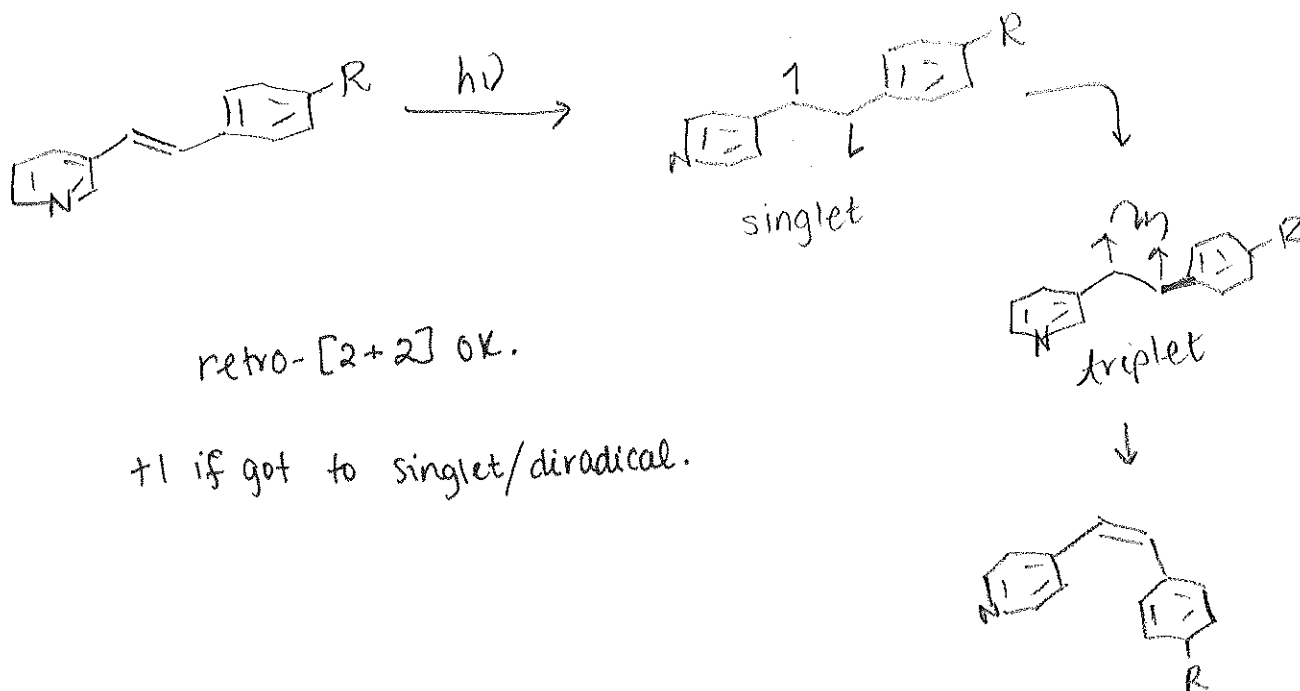 R
hν
R
N
N
singlet
R
N
triplet
retro-[2+2] OK.
+1 if got to singlet/diradical.
N
R